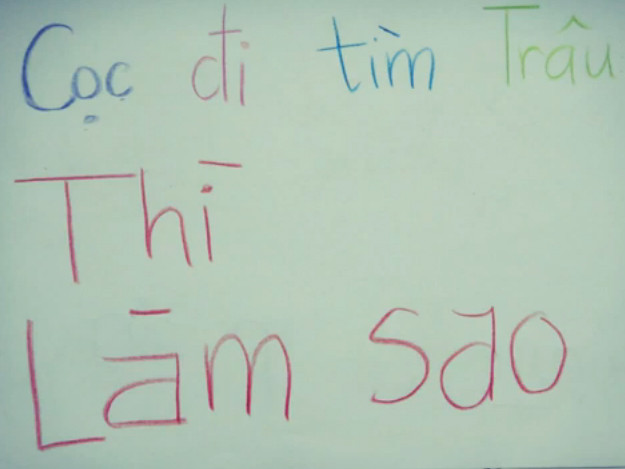 Cọc đi tìm Trâu
Thì
Làm sao